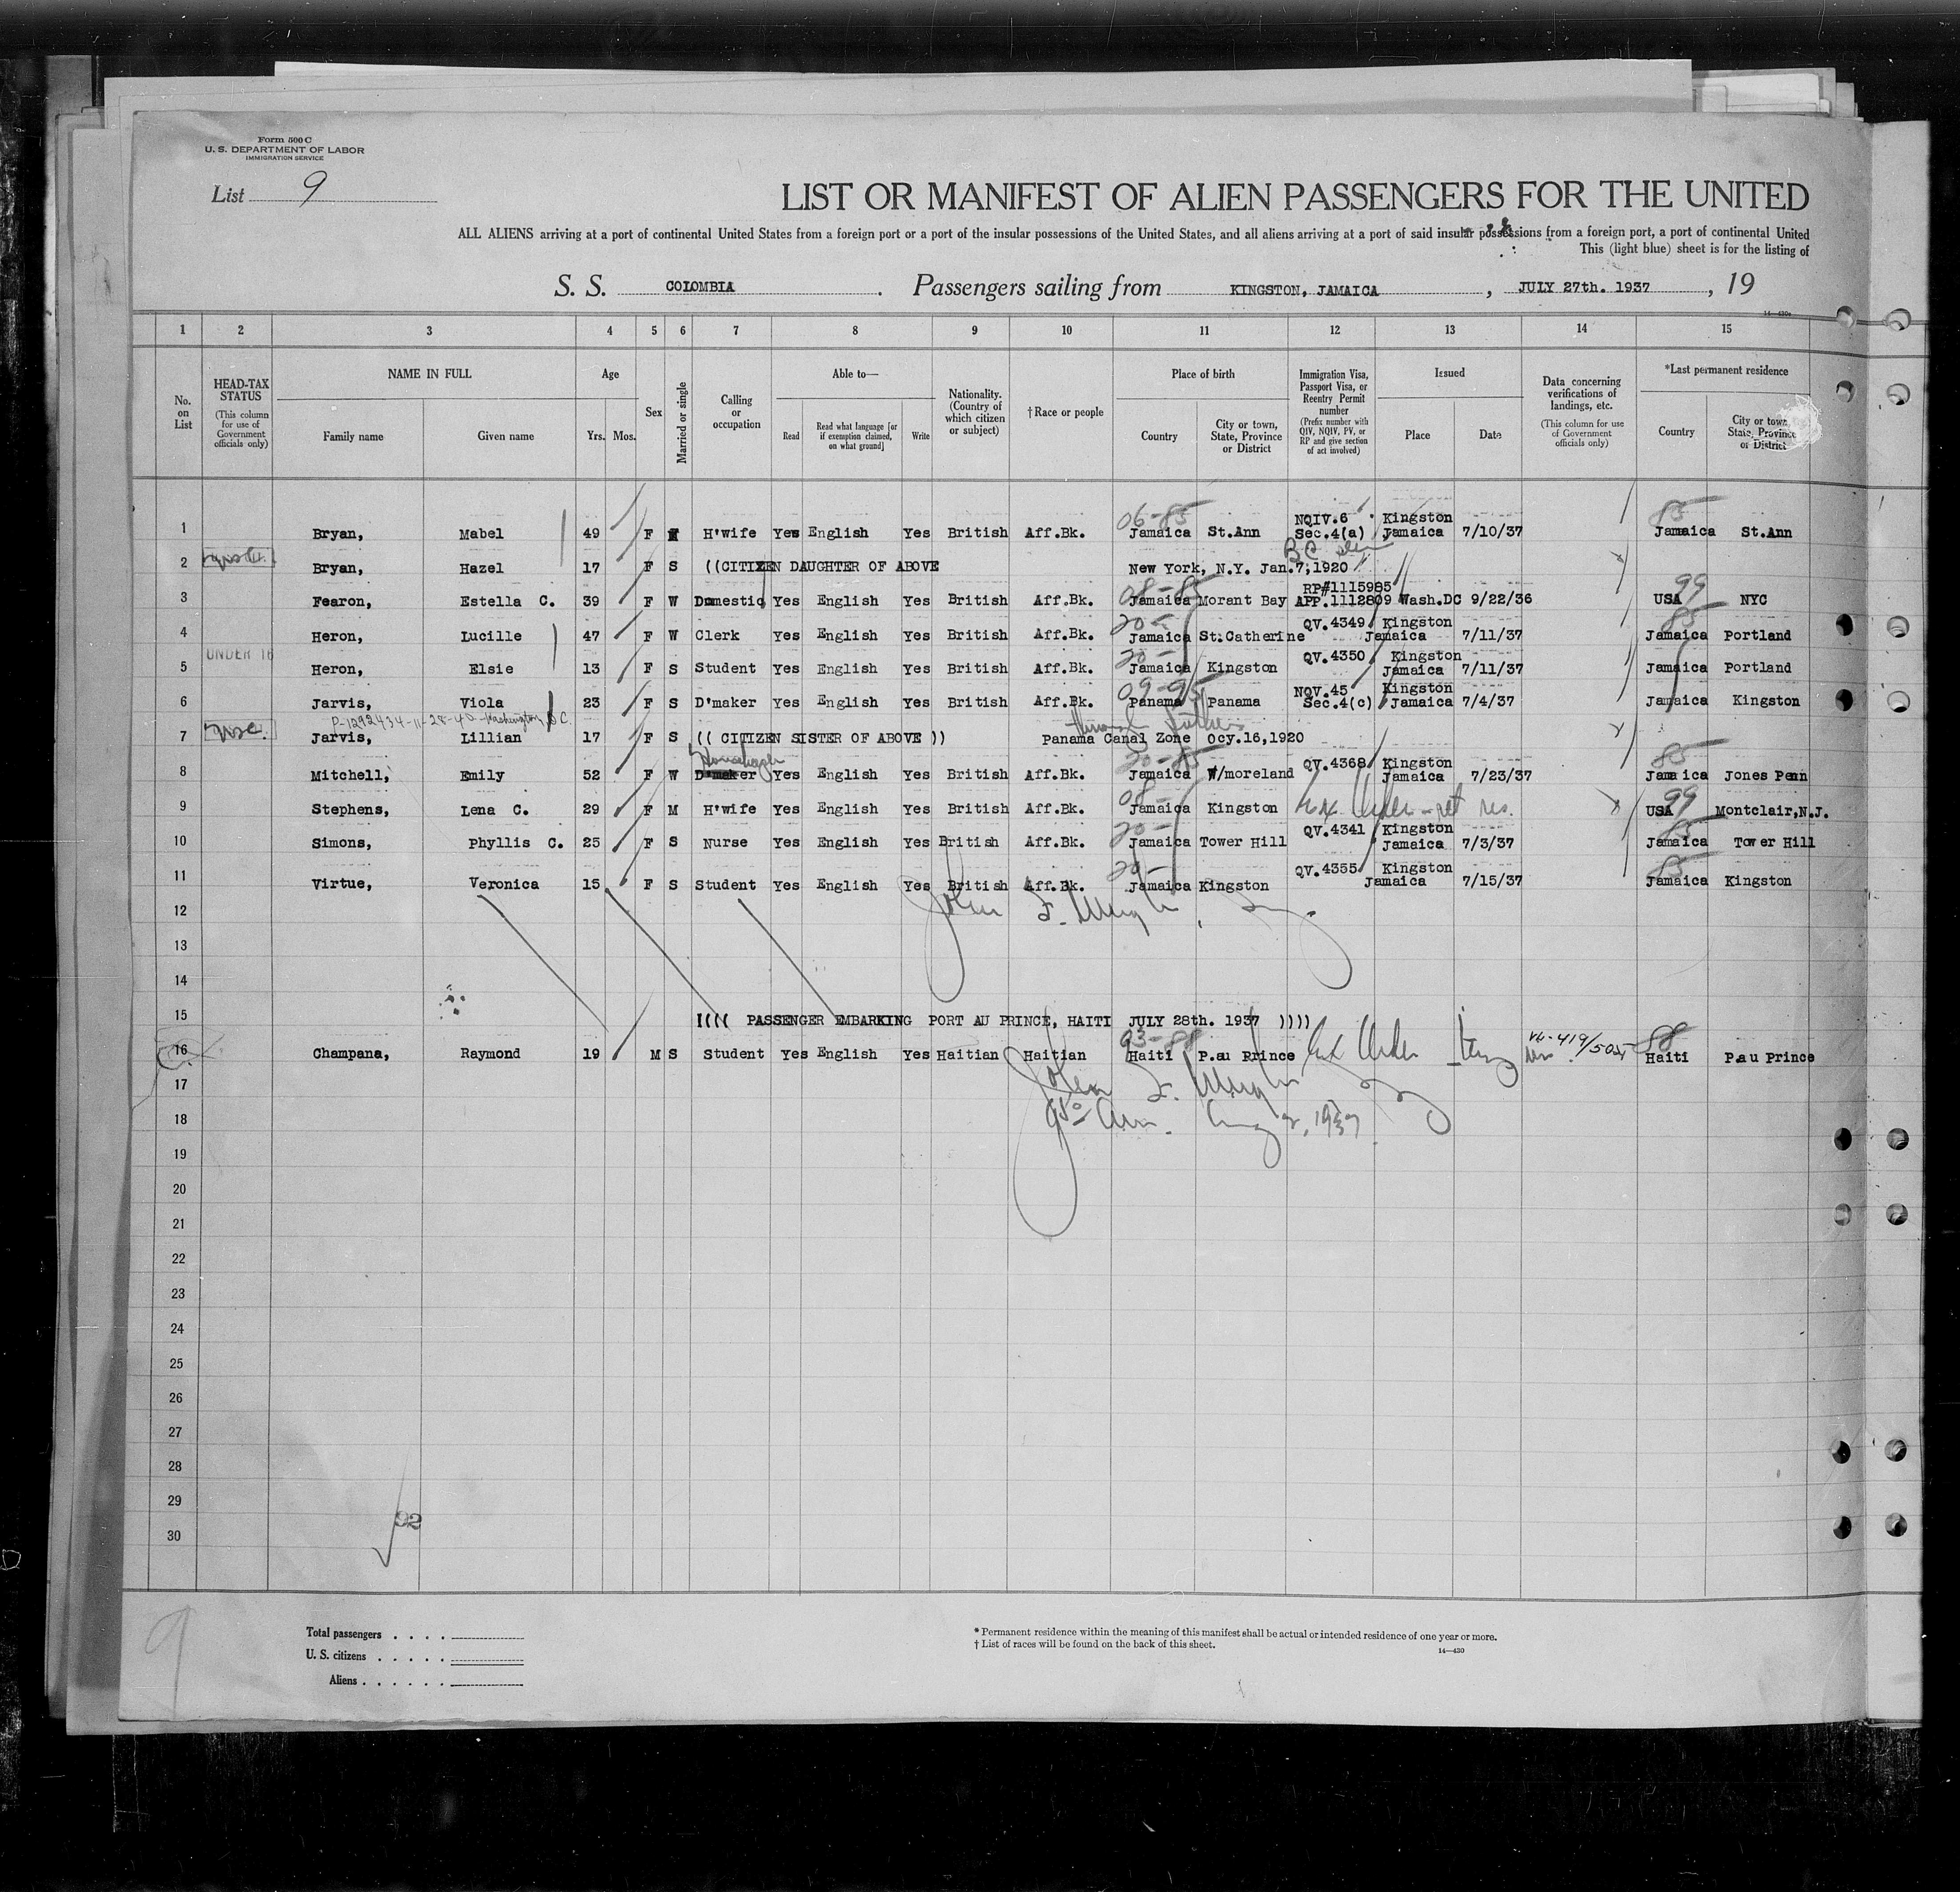 Form 500 C
U. S. DEPARTMENT OF LABOR
IMMIGRATION SERVICE
List 9
LIST OR MANIFEST OF ALIEN PASSENGERS FOR THE UNITED
ALL ALIENS arriving at a port of continental United States from a foreign port or a port of the insular possessions of the United States, and all aliens arriving at a port of said insular possessions from a foreign port, a port of continental United
This (light blue) sheet is for the listing of
S. S. COLOMBIA . Passengers sailing from KINGSTON, JAMAICA , JULY 27th. 1937 , 19
14—430a
1 2 3 4 5 6 7 8 9 10 11 12 13 14 15
No. on List
HEAD-TAX STATUS (This column for use of Government officials only)
NAME IN FULL
Family name Given name
Age
Yrs. Mos.
Sex
Married or single
Calling or occupation
Able to—
Read
Read what language [or if exemption claimed, on what ground]
Write
Nationality. (Country of which citizen or subject)
†Race or people
Place of birth
Country
City or town, State, Province or District
Immigration Visa, Passport Visa, or Reentry Permit number (Prefix number with QIV, NQIV, PV, or RP and give section of act involved)
Issued
Place Date
Data concerning verifications of landings, etc. (This column for use of Government officials only)
*Last permanent residence
Country
City or town, State, Province or District
06-85 NQIV.6 Kingston 85
1 Bryan, Mabel 49 F H'wife Yes English Yes British Aff.Bk. Jamaica St.Ann Sec.4(a) Jamaica 7/10/37 Jamaica St.Ann
BC seen
2 Bryan, Hazel 17 F S ((CITIZEN DAUGHTER OF ABOVE New York, N.Y. Jan.7,1920
08-85 RP#1115985 99
3 Fearon, Estella C. 39 F W Domestic Yes English Yes British Aff.Bk. Jamaica Morant Bay APP.1112809 Wash.DC 9/22/36 USA NYC
20- QV.4349 Kingston 85
4 Heron, Lucille 47 F W Clerk Yes English Yes British Aff.Bk. Jamaica St.Catherine Jamaica 7/11/37 Jamaica Portland
UNDER 16 20- QV.4350 Kingston
5 Heron, Elsie 13 F S Student Yes English Yes British Aff.Bk. Jamaica Kingston Jamaica 7/11/37 Jamaica Portland
09-95 NQV.45 Kingston
6 Jarvis, Viola 23 F S D'maker Yes English Yes British Aff.Bk. Panama Panama Sec.4(c) Jamaica 7/4/37 Jamaica Kingston
P-1292434-11-28-40-Washington, D.C.
7 Jarvis, Lillian 17 F S (( CITIZEN SISTER OF ABOVE )) Panama Canal Zone Ocy.16,1920
20-85 QV.4368 Kingston 85
8 Mitchell, Emily 52 F W D'maker Yes English Yes British Aff.Bk. Jamaica W/moreland Jamaica 7/23/37 Jamaica Jones Penn
08- 99
9 Stephens, Lena C. 29 F M H'wife Yes English Yes British Aff.Bk. Jamaica Kingston ret res. USA Montclair,N.J.
20- QV.4341 Kingston 85
10 Simons, Phyllis C. 25 F S Nurse Yes English Yes British Aff.Bk. Jamaica Tower Hill Jamaica 7/3/37 Jamaica Tower Hill
20- QV.4355 Kingston 85
11 Virtue, Veronica 15 F S Student Yes English Yes British Aff.Bk. Jamaica Kingston Jamaica 7/15/37 Jamaica Kingston
12 John F.
13
14
15 (((( PASSENGER EMBARKING PORT AU PRINCE, HAITI JULY 28th. 1937 ))))
93-88 88
16 Champana, Raymond 19 M S Student Yes English Yes Haitian Haitian Haiti P.au Prince Haiti P.au Prince
17 John F.
18 Aug 2, 1937
19
20
21
22
23
24
25
26
27
28
29
92
30
9
Total passengers
U. S. citizens
Aliens
* Permanent residence within the meaning of this manifest shall be actual or intended residence of one year or more.
† List of races will be found on the back of this sheet.
14—430